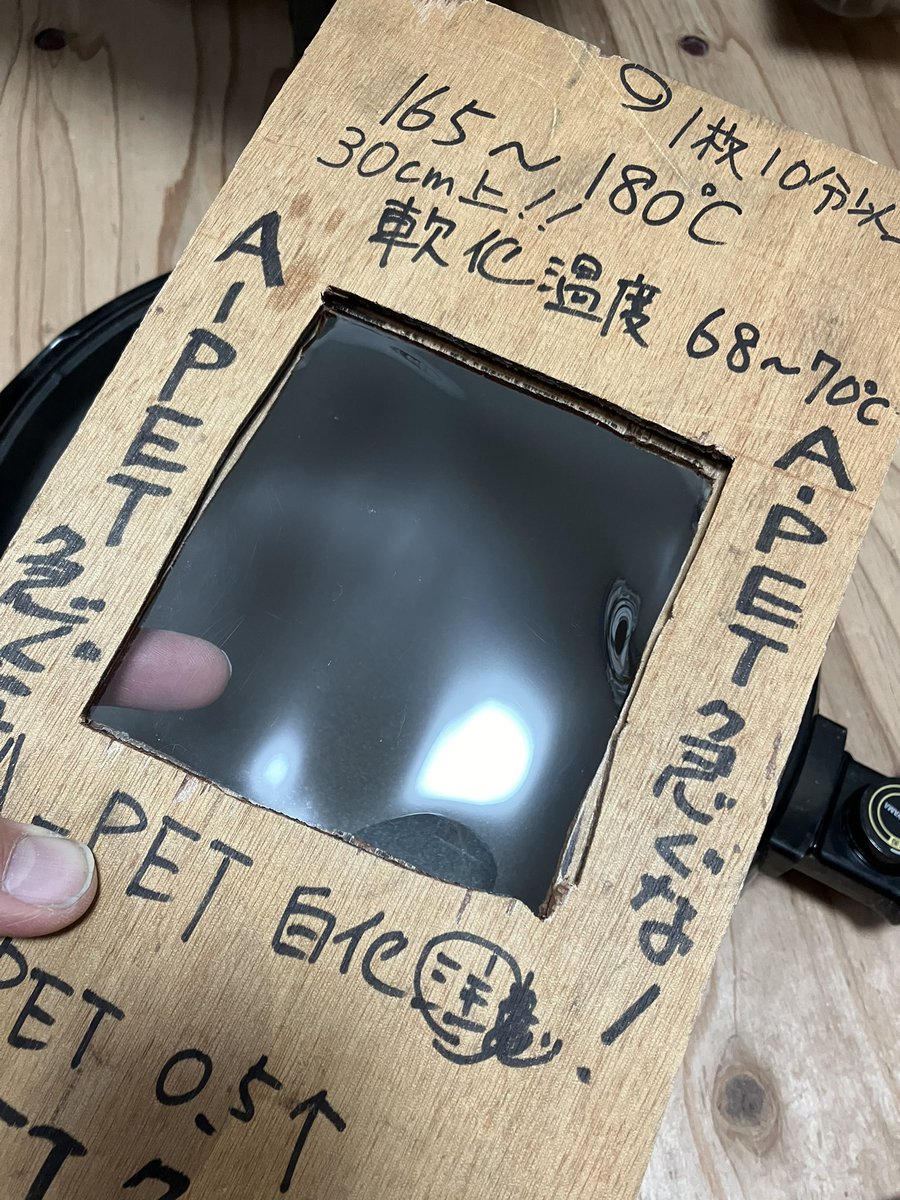 ⑨ 1枚10分以
165〜180℃
30cm上!!
軟化温度 68〜70℃
A-PET 急ぐ
A-PET 急ぐな!
A-PET 白化 注意
PET 0.5↑